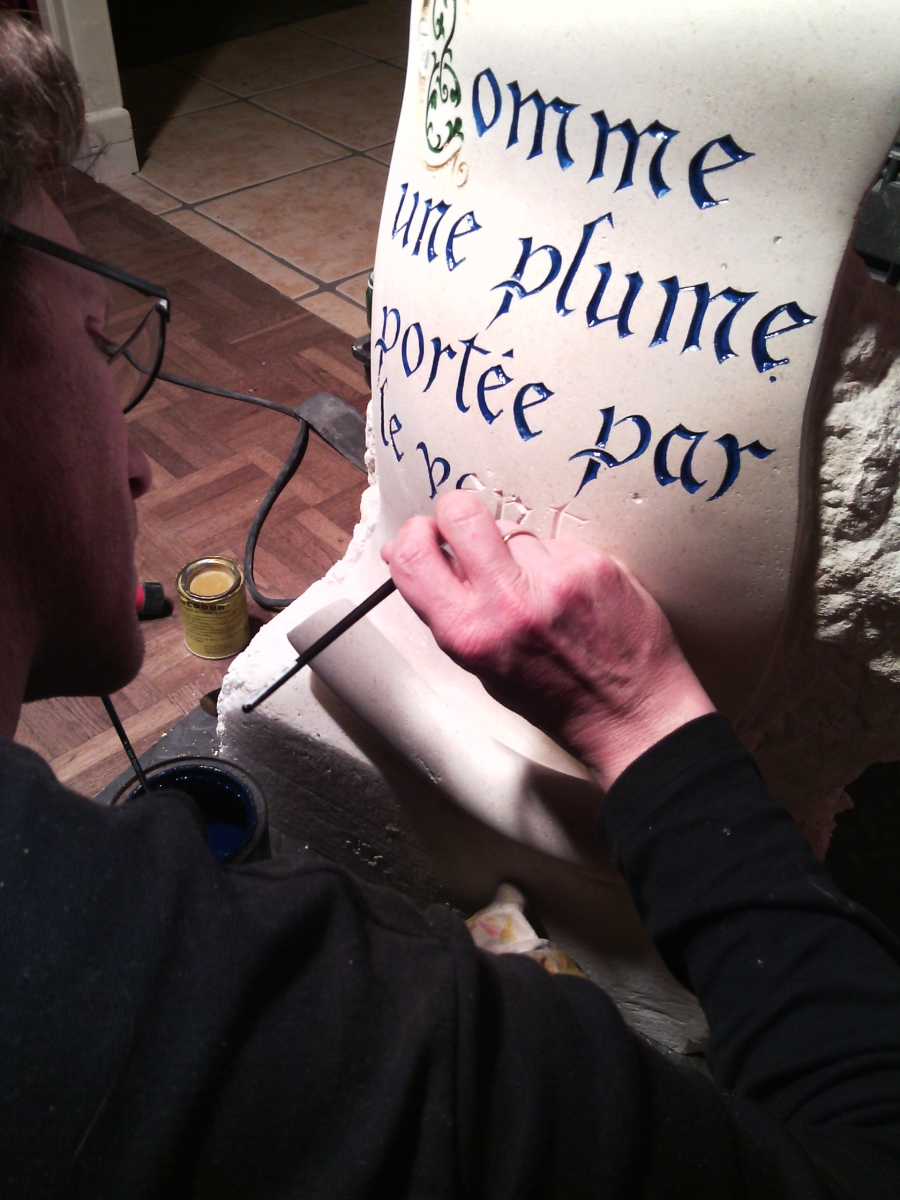 Comme
une plume
portée par
le vent